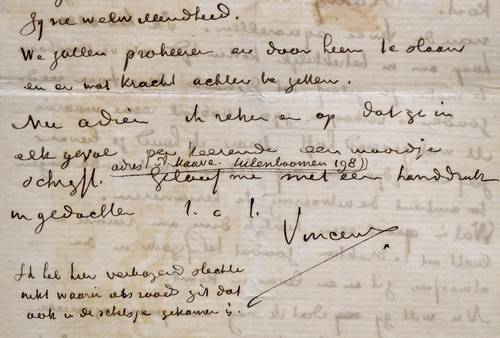 zijne welwillendheid.
We zullen probeeren er door heen te slaan
en er wat kracht achter te zetten.
Nu adieu ik reken er op dat ge in
elk geval per keerende een woordje
schrijft. adres Uilenboomen 198))
Geloof me met een handdruk
in gedachten t. à t.
Vincent
Ik heb hier verbazend slechte
inkt waarin absraad zit dat
ook in de schetsje gekomen is.